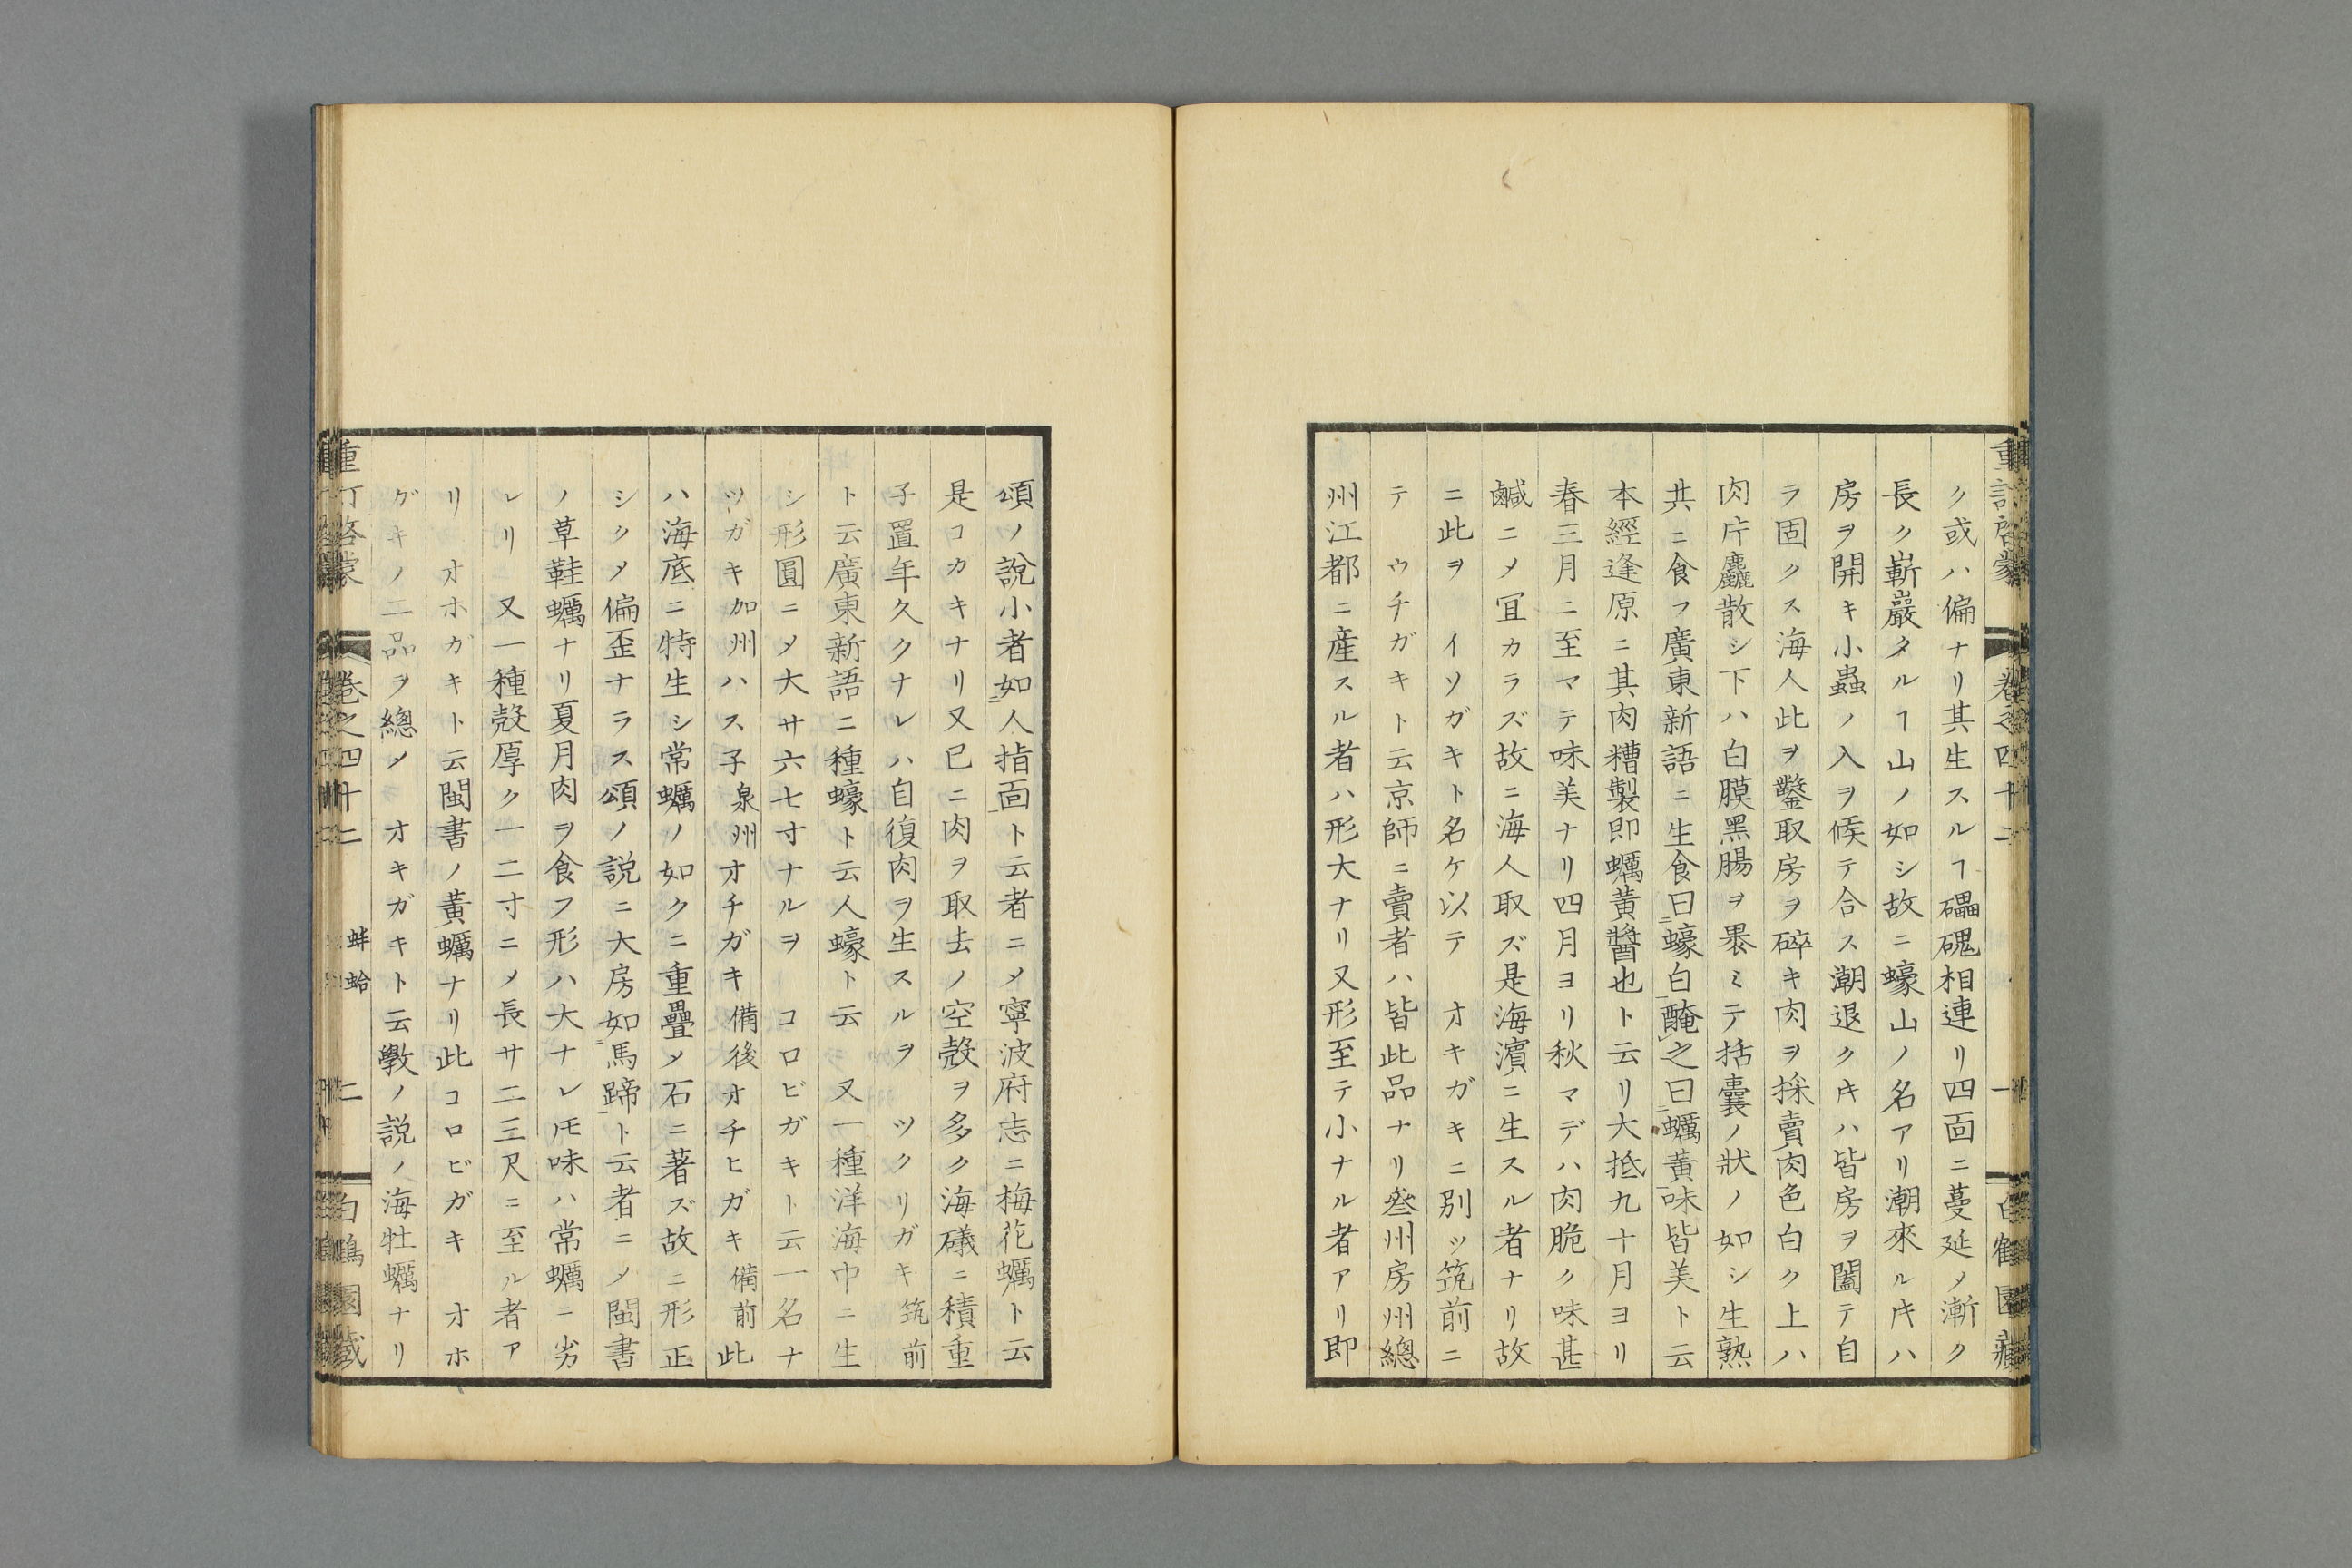 重訂啓蒙 卷之四十二 一 白鶴園藏
ク或ハ偏ナリ其生スルヿ礧磈相連リ四面ニ蔓延メ漸ク
長ク嶄巖タルヿ山ノ如シ故ニ蠔山ノ名アリ潮來ル𪜈ハ
房ヲ開キ小蟲ノ入ヲ候テ合ス潮退クキハ皆房ヲ闔テ自
ラ固クス海人此ヲ鑿取房ヲ碎キ肉ヲ採賣肉色白ク上ハ
肉片麤散シ下ハ白膜黑腸ヲ褁ミテ括囊ノ狀ノ如シ生熟
共ニ食フ廣東新語ニ生食曰蠔白醃之曰蠣黃味皆美ト云
本經逢原ニ其肉糟製即蠣黃醬也ト云リ大抵九十月ヨリ
春三月ニ至マテ味美ナリ四月ヨリ秋マデハ肉脆ク味甚
鹹ニメ冝カラズ故ニ海人取ズ是海濱ニ生スル者ナリ故
ニ此ヲ イソガキト名ケ以テ オキガキニ別ツ筑前ニ
テ ウチガキト云京師ニ賣者ハ皆此品ナリ叄州房州總
州江都ニ産スル者ハ形大ナリ又形至テ小ナル者アリ即
頌ノ說小者如人指面ト云者ニメ寧波府志ニ梅花蠣ト云
是コカキナリ又已ニ肉ヲ取去ノ空殼ヲ多ク海礒ニ積重
子置年久クナレハ自復肉ヲ生スルヲ ツクリガキ筑前
ト云廣東新語ニ種蠔ト云人蠔ト云 又一種洋海中ニ生
シ形圓ニメ大サ六七寸ナルヲ コロビガキト云一名ナ
ツガキ加州ハス子泉州オチガキ備後オチヒガキ備前此
ハ海底ニ特生シ常蠣ノ如クニ重疊メ石ニ著ズ故ニ形正
シクメ偏歪ナラス頌ノ説ニ大房如馬蹄ト云者ニメ閩書
ノ草鞋蠣ナリ夏月肉ヲ食フ形ハ大ナレ𪜈味ハ常蠣ニ劣
レリ 又一種殼厚ク一二寸ニメ長サ二三尺ニ至ル者ア
リ オホガキト云閩書ノ黃蠣ナリ此コロビガキ オホ
ガキノ二品ヲ總メ オキガキト云斅ノ説ノ海牡蠣ナリ
重訂啓蒙 卷之四十二 蚌蛤 二 白鶴園藏